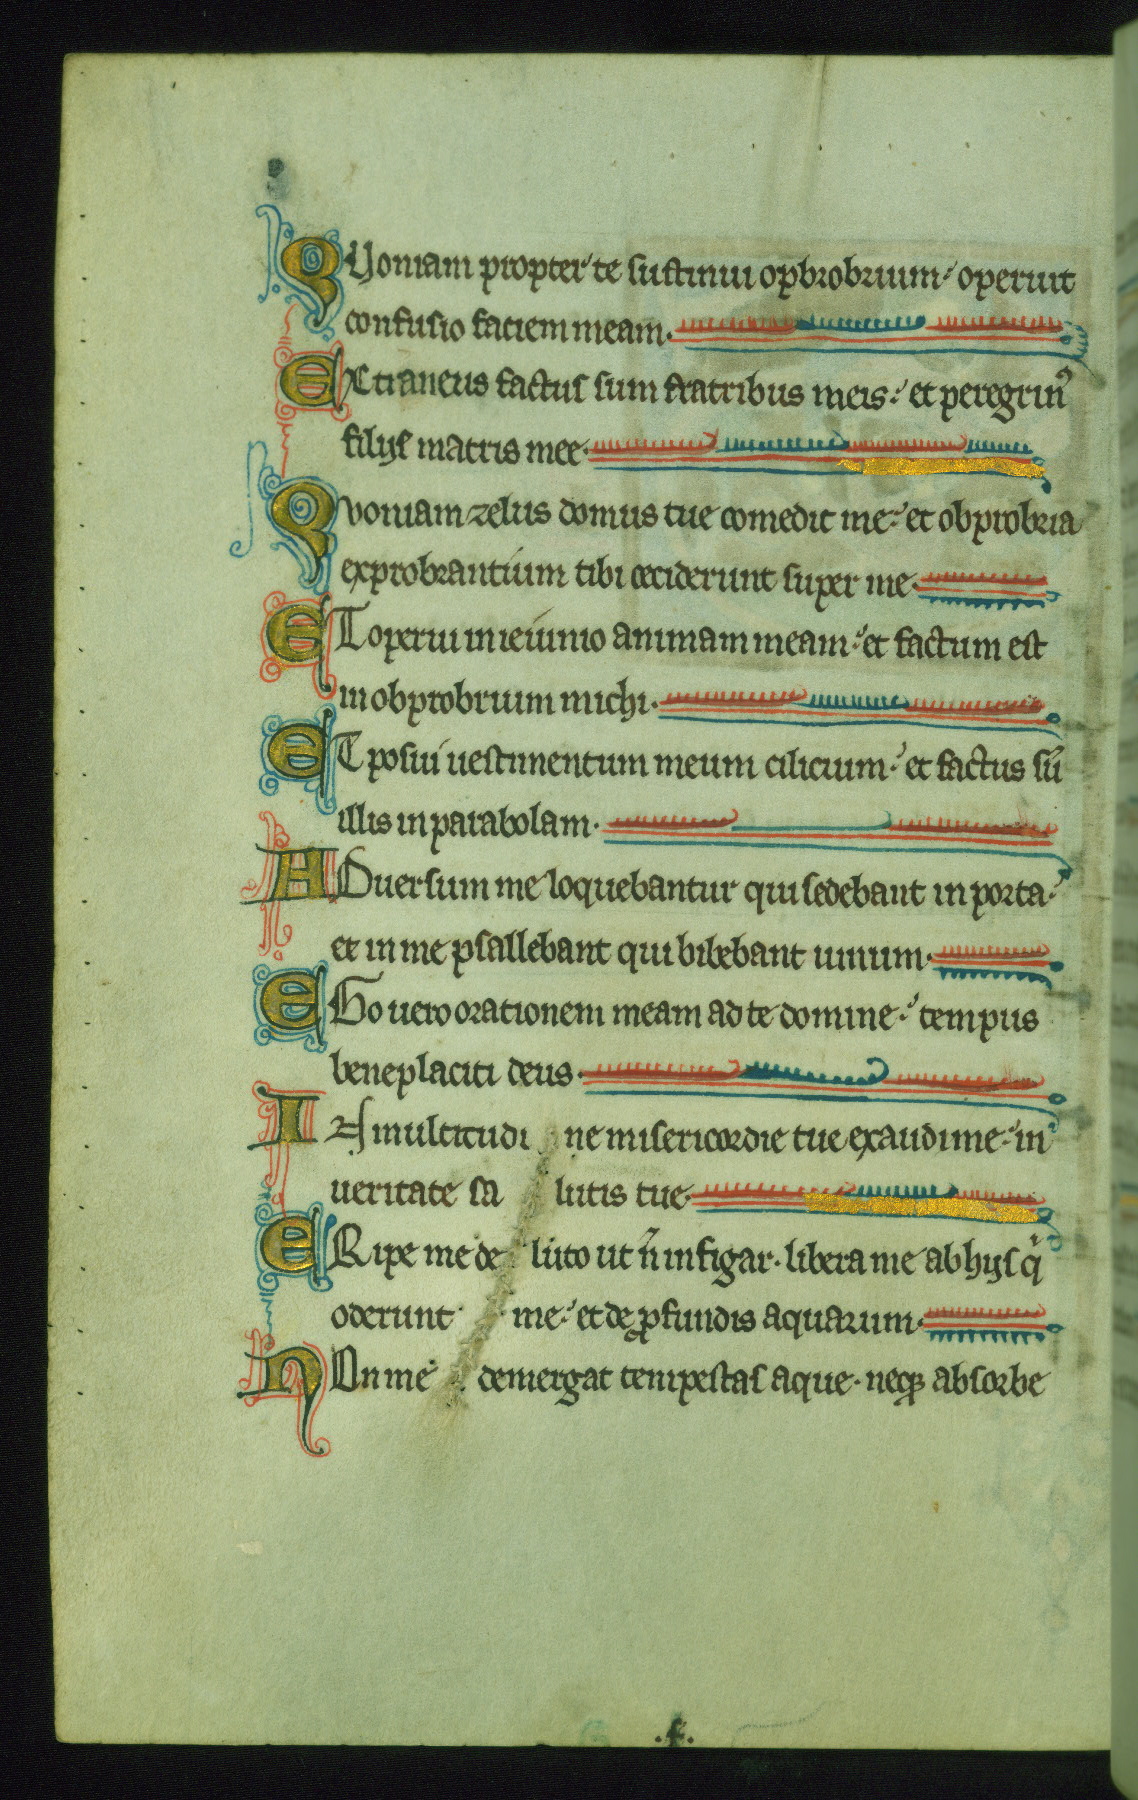 QUoniam propter te sustinui opbrobrium operuit
confusio faciem meam.
EXtraneus factus sum fratribus meis: et peregrinꝰ
filijs matris mee.
Quoniam zelus domus tue comedit me: et obprobria
exprobrantium tibi ceciderunt super me.
ET operui in ieiunio animam meam: et factum est
in obprobrium michi.
ET posui uestimentum meum cilicium: et factus sū
illis in parabolam.
ADuersum me loquebantur qui sedebant in porta:
et in me psallebant qui bibebant uinum.
EGo uero orationem meam ad te domine: tempus
beneplaciti deus.
IN multitudine misericordie tue exaudi me: in
ueritate salutis tue.
ERipe me de luto ut n̄ infigar. libera me ab hijs q̇
oderunt me: et de ꝓfundis aquarum.
NOn me demergat tempestas aque. neqꝫ absorbe
.f.